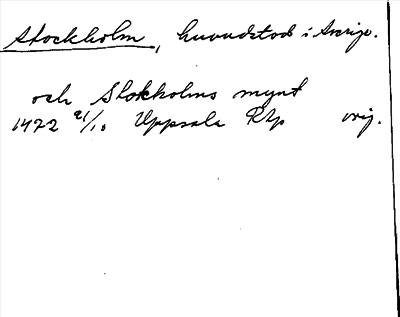 Stockholm, huvudstad i Sverige.
och Stokholms mynt
1472 21/10 Uppsala Rtp orig.